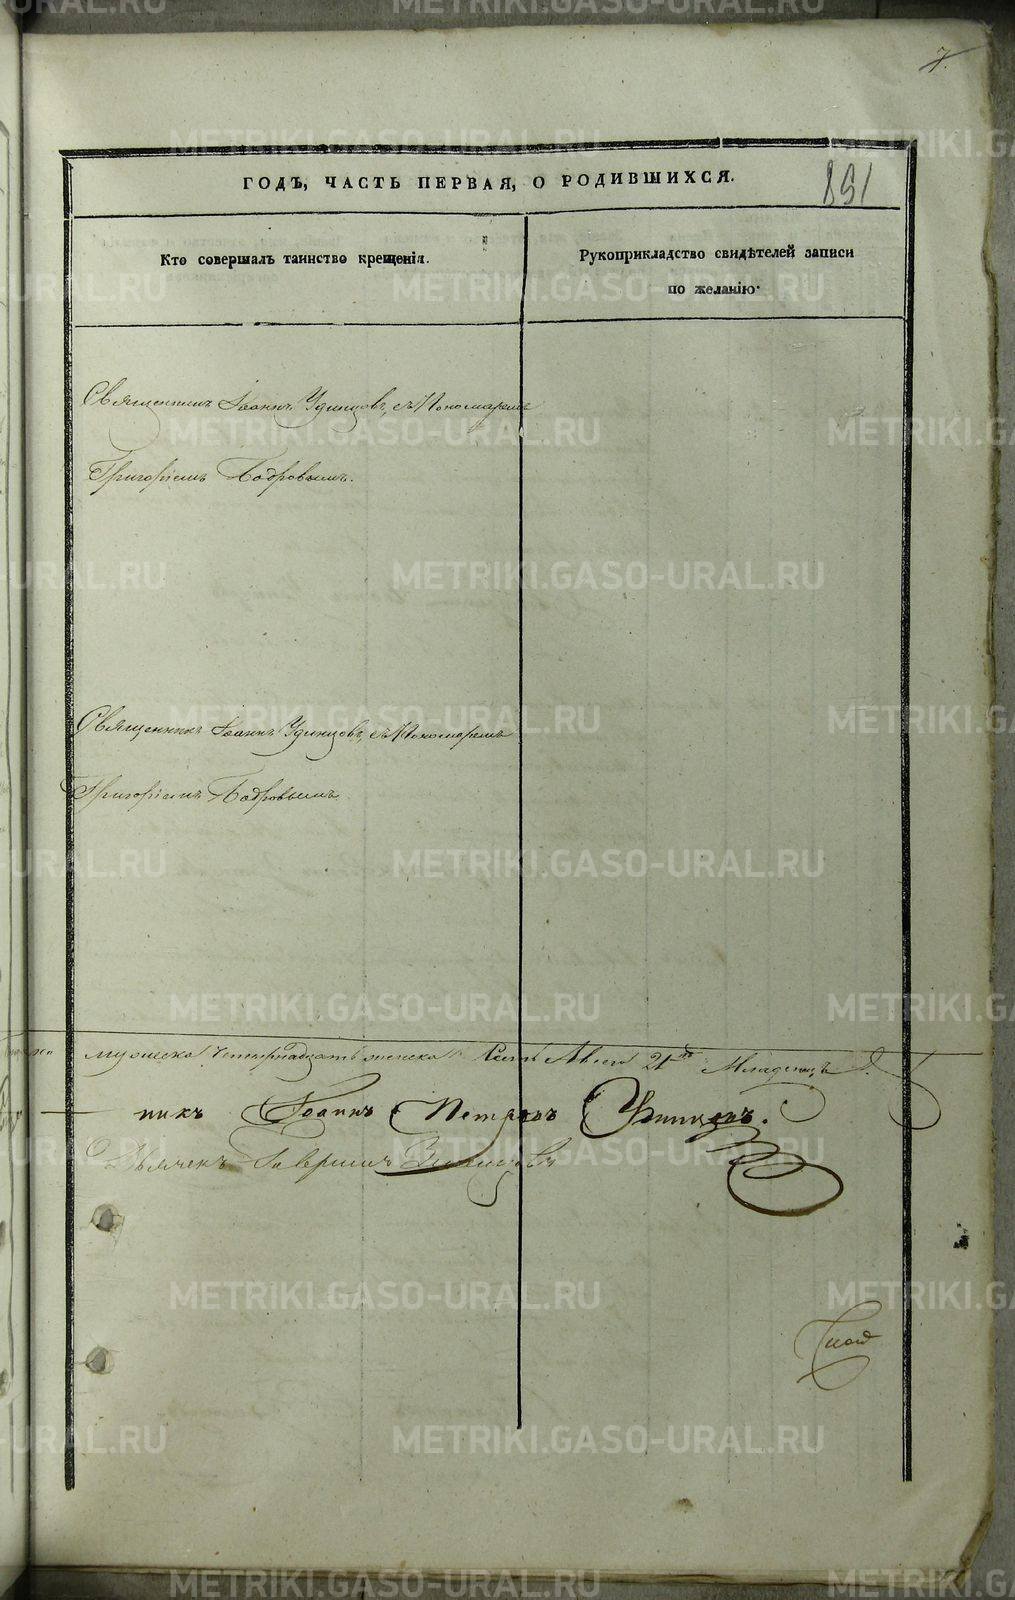 7.
851
ГОДЪ, ЧАСТЬ ПЕРВАЯ, О РОДИВШИХСЯ.
Кто совершалъ таинство крещенія.
Рукоприкладство свидѣтелей записи
по желанію.
Священникъ Іоаннъ Удинцовъ, съ Пономаремъ
Григоріемъ Бодровымъ.
Священникъ Іоаннъ Удинцовъ, съ Пономаремъ
Григоріемъ Бодровымъ.
мужеска четырнадцать женска семь Младенцъ
никъ Іоаннъ Петровъ Удинцовъ.
Дьячекъ Гавриилъ
METRIKI.GASO-URAL.RU